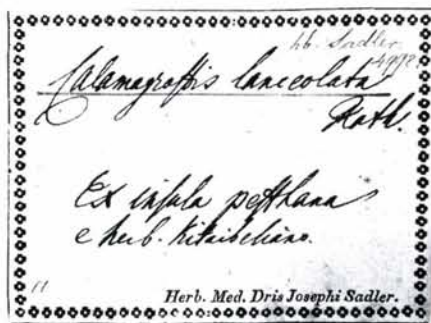 hb. Sadler
4992
Calamagrostis lanceolata
Roth.
Ex insula pesthana
e herb. Kitaibeliano.
11
Herb. Med. Dris Josephi Sadler.